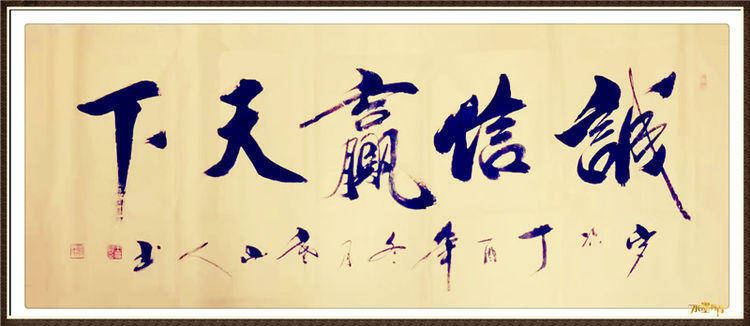 誠信贏天下
岁次丁酉年冬月山人书